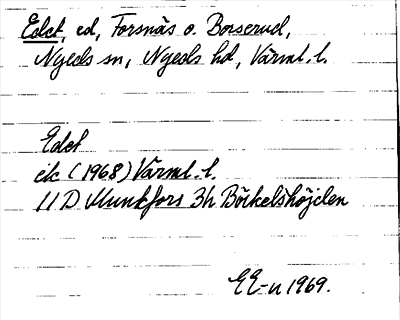 Edet, ed, Forsnäs o. Borserud,
Nyeds sn, Nyeds hd, Värml. l.
Edet
ek (1968) Värml. l.
11 D Munkfors 3h Börkelshöjden
EE-n 1969.